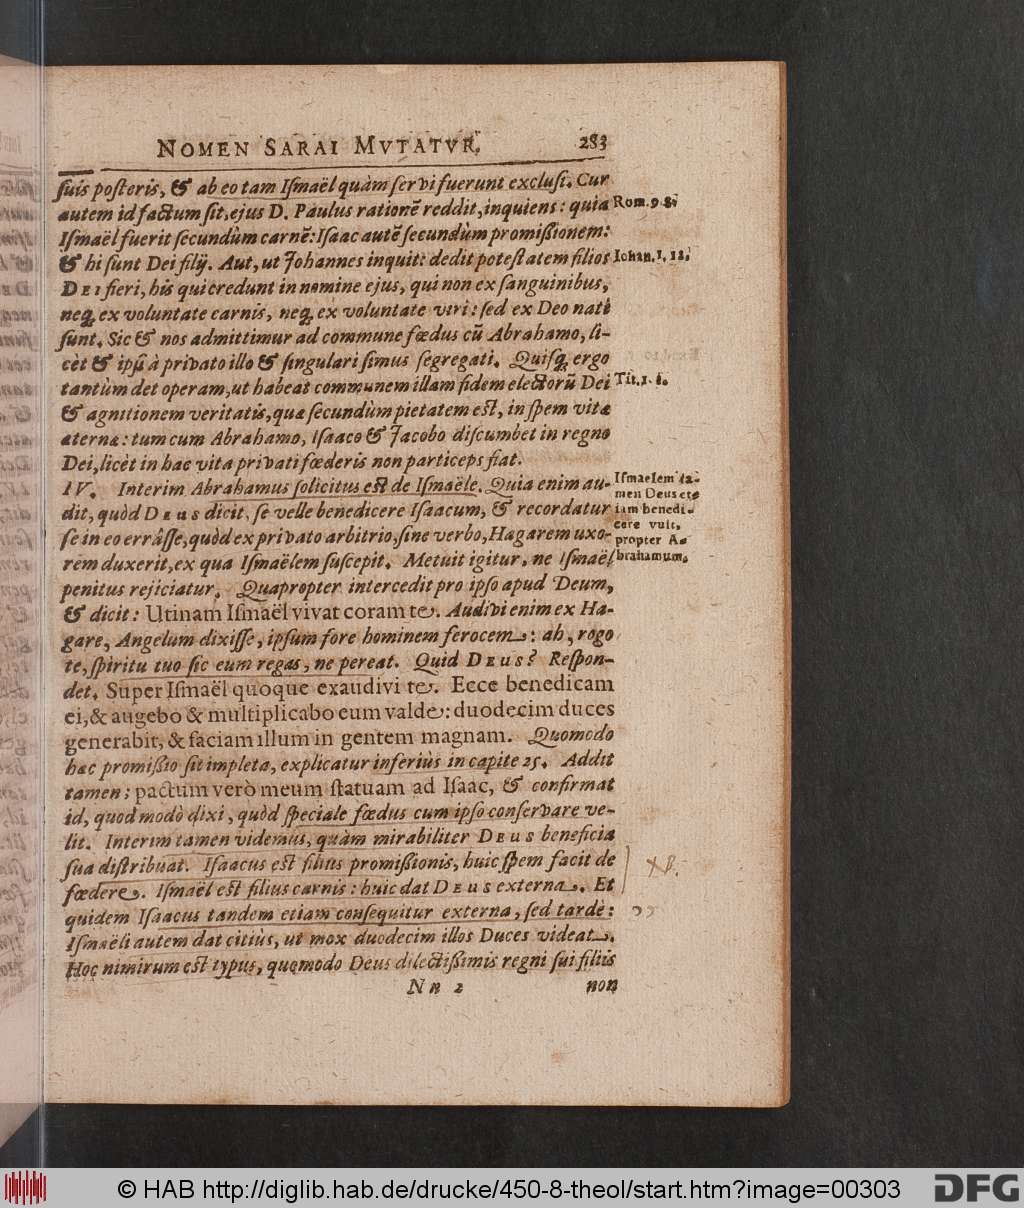 NOMEN SARAI MVTATVR. 283
ſuis poſteris, & ab eo tam Iſmaël quàm ſervi fuerunt excluſi. Cur
autem id factum ſit, ejus D. Paulus rationẽ reddit, inquiens: quia
Rom. 9. 8.
Iſmaël fuerit ſecundùm carnẽ: Iſaac autẽ ſecundùm promiſſionem:
& hi ſunt Dei filij. Aut, ut Johannes inquit: dedit poteſtatem filios
Iohan. 1. 12.
DEI fieri, his qui credunt in nomine ejus, qui non ex ſanguinibus,
neq; ex voluntate carnis, neq; ex voluntate viri: ſed ex Deo nati
ſunt. Sic & nos admittimur ad commune fœdus cũ Abrahamo, li-
cèt & ipſi à privato illo & ſingulari ſimus ſegregati. Quiſq; ergo
tantùm det operam, ut habeat communem illam fidem electorũ Dei
Tit. 1. 1.
& agnitionem veritatis, quæ ſecundùm pietatem eſt, in ſpem vitæ
æternæ: tum cum Abrahamo, Iſaaco & Jacobo diſcumbet in regno
Dei, licèt in hac vita privati fœderis non particeps fiat.
IV. Interim Abrahamus ſolicitus eſt de Iſmaële. Quia enim au-
dit, quòd DEUS dicit, ſe velle benedicere Iſaacum, & recordatur
ſe in eo errâſſe, quòd ex privato arbitrio, ſine verbo, Hagarem uxo-
rem duxerit, ex qua Iſmaëlem ſuſcepit. Metuit igitur, ne Iſmaël
Iſmaelem ta-
men Deus et⸗
iam benedi-
cere vult,
propter A-
brahamum.
penitus rejiciatur. Quapropter intercedit pro ipſo apud Deum,
& dicit: Utinam Iſmaël vivat coram te. Audivi enim ex Ha-
gare, Angelum dixiſſe, ipſum fore hominem ferocem: ah, rogo
te, ſpiritu tuo ſic eum regas, ne pereat. Quid DEUS? Reſpon-
det. Super Iſmaël quoque exaudivi te. Ecce benedicam
ei, & augebo & multiplicabo eum valde: duodecim duces
generabit, & faciam illum in gentem magnam. Quomodo
hæc promiſſio ſit impleta, explicatur inferiùs in capite 25. Addit
tamen; pactum verò meum ſtatuam ad Iſaac, & confirmat
id, quod modò dixi, quòd ſpeciale fœdus cum ipſo conſervare ve-
lit. Interim tamen videmus, quàm mirabiliter DEUS beneficia
ſua diſtribuat. Iſaacus eſt filius promiſſionis, huic ſpem facit de
fœdere. Iſmaël eſt filius carnis: huic dat DEUS externa. Et
quidem Iſaacus tandem etiam conſequitur externa, ſed tardè:
Iſmaëli autem dat citiùs, ut mox duodecim illos Duces videat.
Hoc nimirum eſt typus, quomodo Deus dilectiſſimis regni ſui filiis
Nn 2 non
© HAB http://diglib.hab.de/drucke/450-8-theol/start.htm?image=00303
DFG